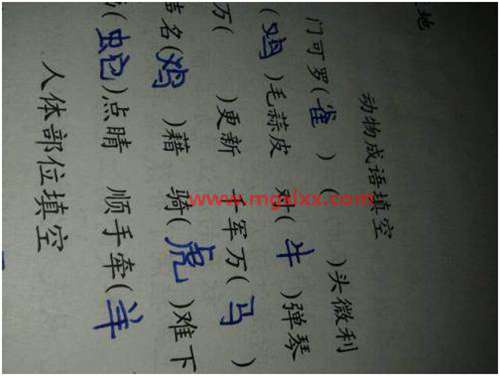 地
动物成语填空
门可罗(雀) ( )头微利
(鸡)毛蒜皮 对(牛)弹琴
万( )更新 千军万(马)
名(鸡)藉 骑(虎)难下
(蛇)点睛 顺手牵(羊)
人体部位填空
www.mgxlxx.com